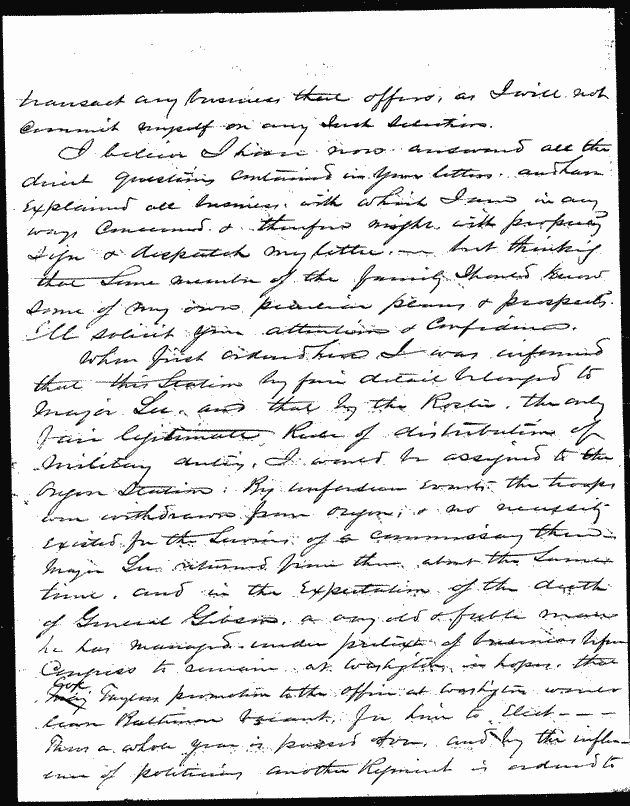 transact any business that offers, as I will not
commit myself on any such selection.
I believe I have now answered all the
direct questions contained in your letters. and have
explained all business, with which I am in any
ways concerned. & therefore might, with propriety
sign & dispatch my letter. — but thinking
that some member of the family should know
some of my own peculiar plans & prospects.
I'll solicit your attention & confidence.
When first ordered here I was informed
that this Station by fair detail belonged to
Major Lee. and that by the Roster. the only
fair legitimate Rule of distribution of
military duties, I would be assigned to the
Oregon Station. By unforseen events the troops
were withdrawn from Oregon, & no necessity
existed for the services of a commissary there—
Major Lee returned from there about the same
time. and in the expectation of the death
of General Gibson. a very old & feeble man
he has managed under pretext of business before
Congress to remain at Washington in hopes that
Capt Taylors promotion to the office at Washington would
leave Baltimore vacant, for him to Elect - - -
Thus a whole year is passed over, and by the influ-
ence of politicians another Regiment is ordered to